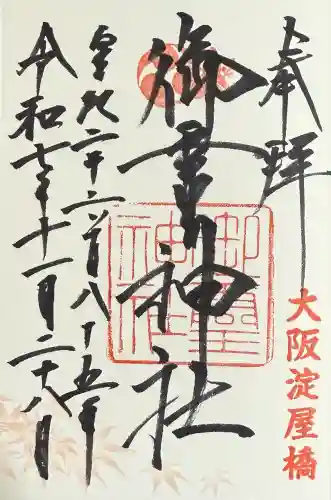 奉拝
大阪淀屋橋
御霊神社
御霊神社
皇紀二千六百八十五年
令和七年十一月二十八日